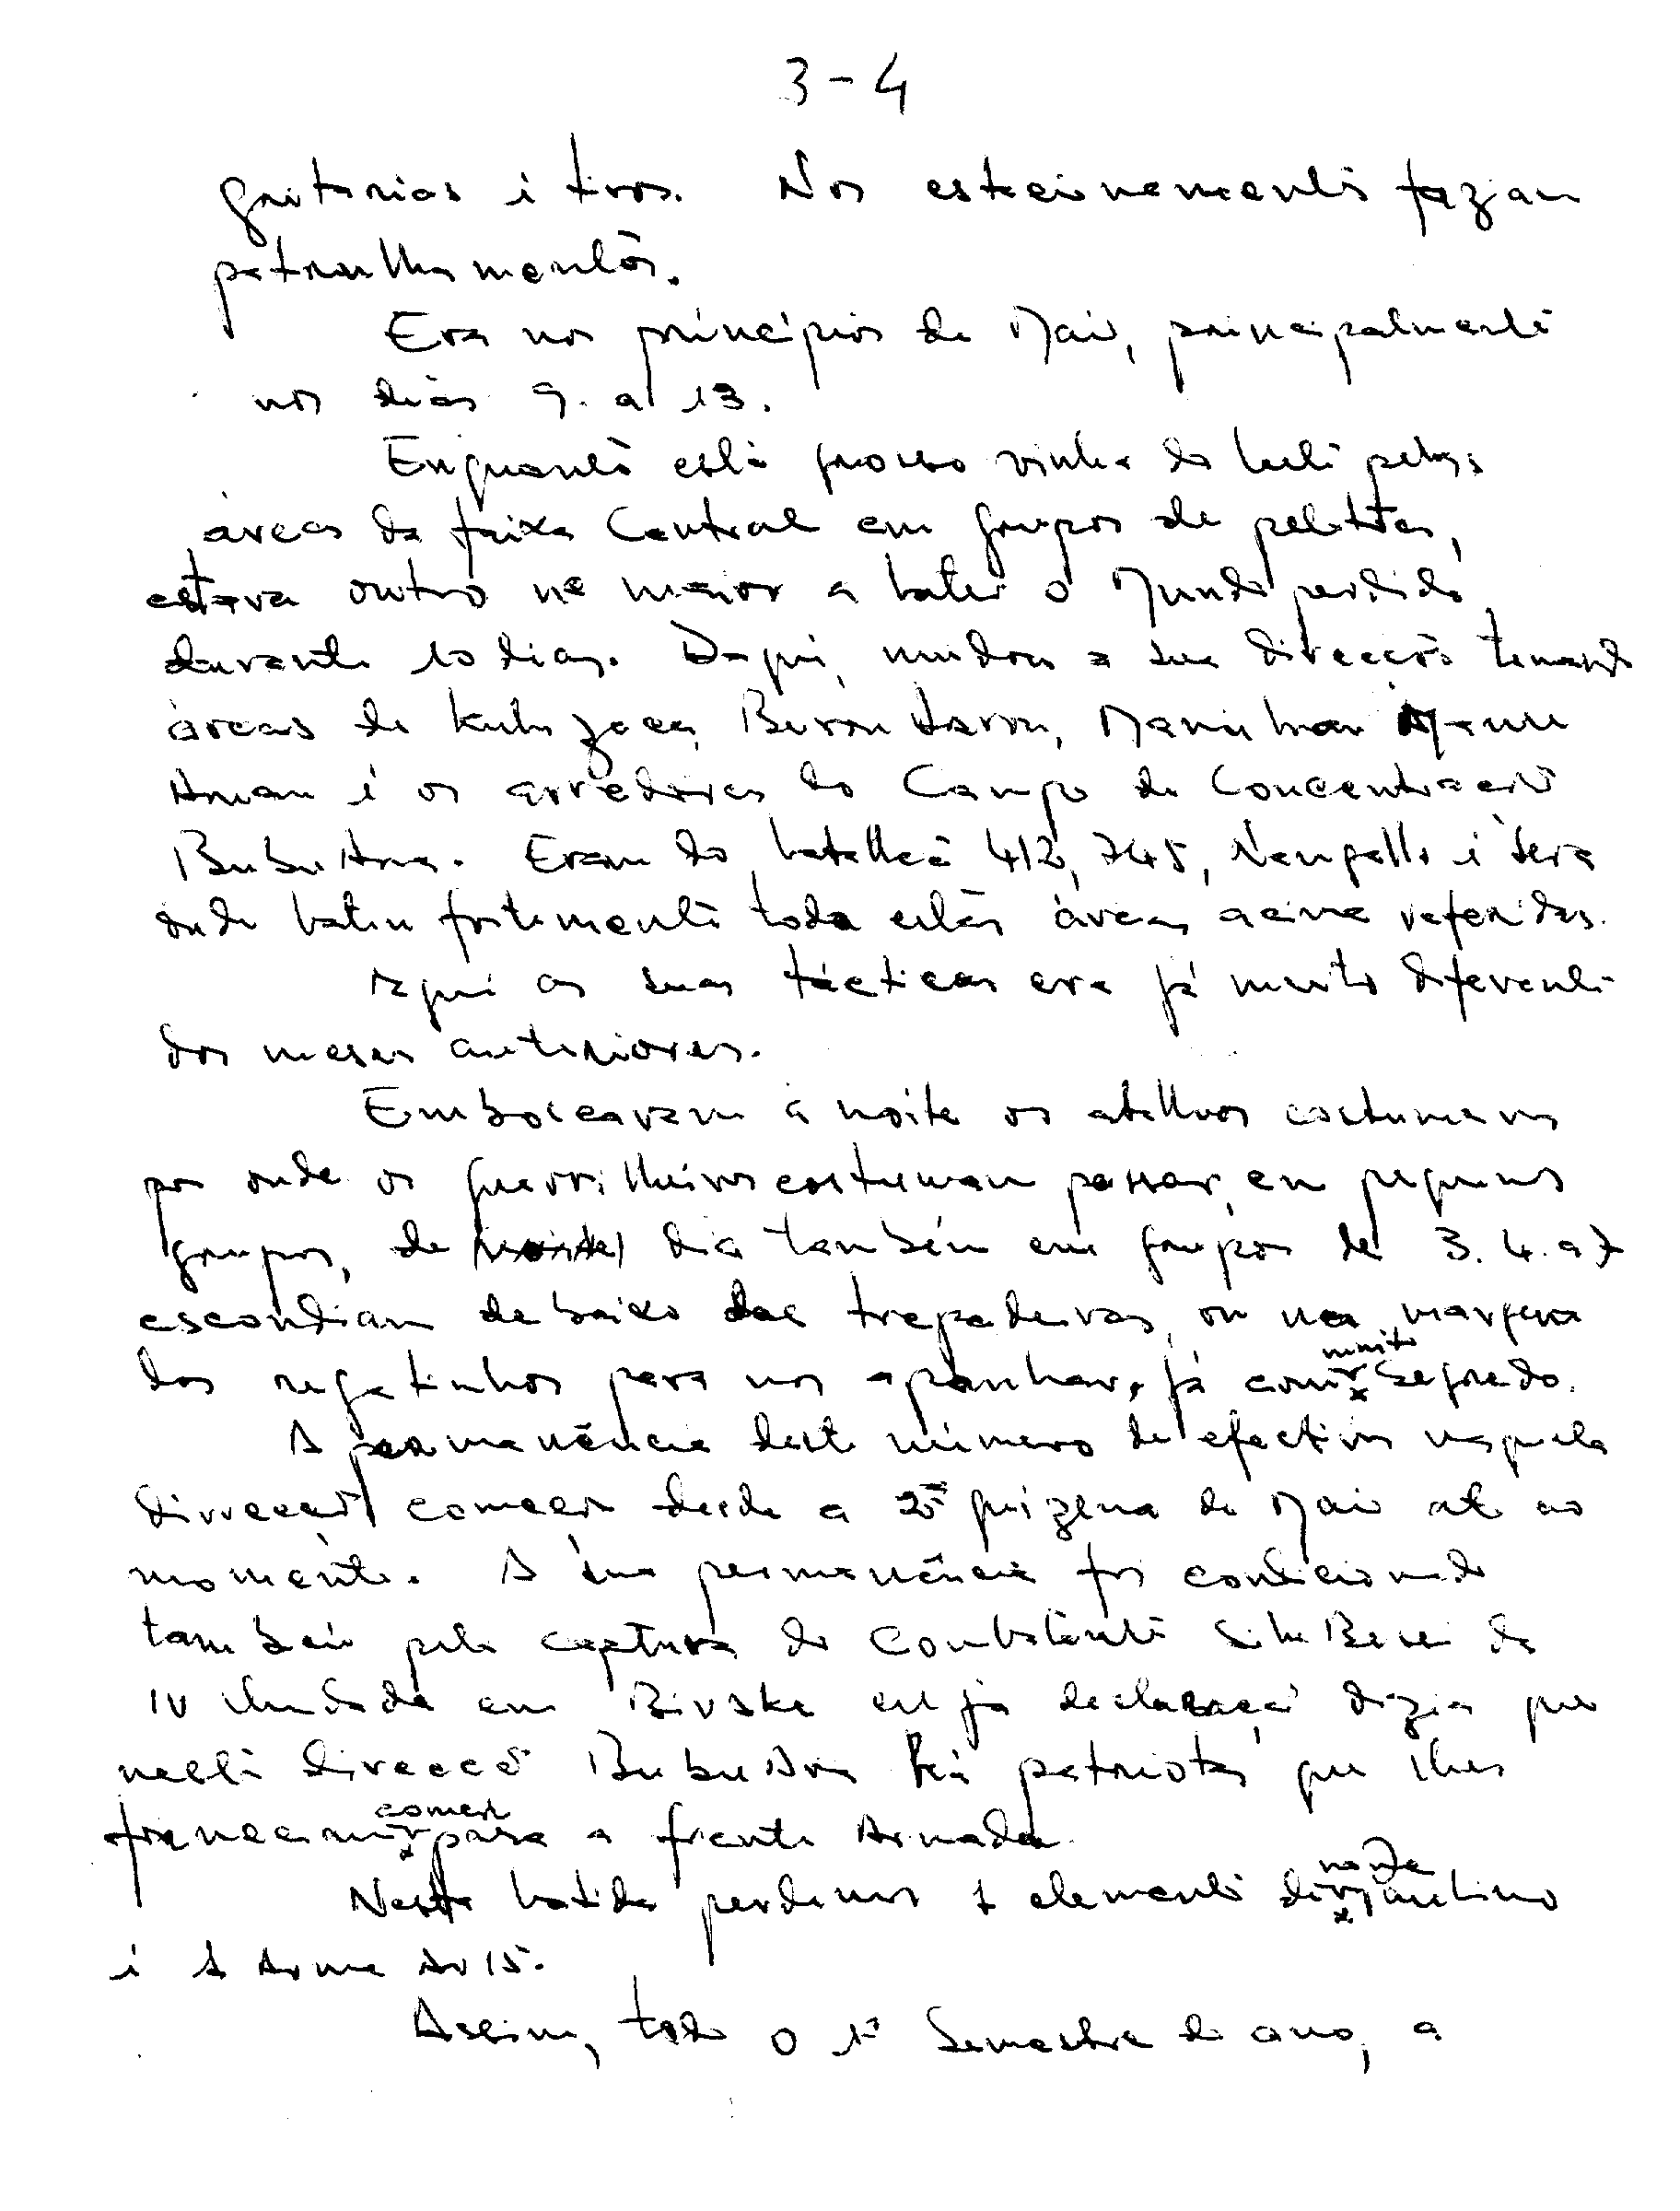 3-4
gritarias i tiros. Nos estacionamentos faziam
patrulhamentos.
Era nos princípios de Maio, principalmente
nos dias 9. a 13.
Enquanto este grosso vinha do leste pelas
áreas da faixa Central em grupos de pelotões,
estava outro na maior a bater o Mundo perdido
durante 10 dias. Daqui, mudou a sua direcção tomando
áreas de Builo
arredores do Campo de Concentração
BubuHra. Eram do batalhão 412, 745, Nangalla i
onde bateu fortemente toda estas áreas acima referidas.
Aqui as suas tácticas era já muito diferente
dos meses anteriores.
Emboscavam à noite os atalhos costumava
por onde os guerrilheiros costumam passar, em pequenos
grupos, de dia também em grupos de 3. 4. a 7
escondiam debaixo das trepadeiras, ou nas margem
dos regatinhos para nos apanhar, já com muito segredo.
A permanência deste número de efectivos naquela
direcção começou desde a 2ª quizena de Maio até ao
momento. A sua permanência foi condicionado
também pela captura do Combatente da
IV Unidade em cuja declaração dizia que
nesta direcção há patriotas que lhes
forneciam comer para a frente Armada.
Nesta batida perdemos 1 elemento de nome
i 1 Arma Ar 15.
Assim, todo o 1º Semestre do ano, a